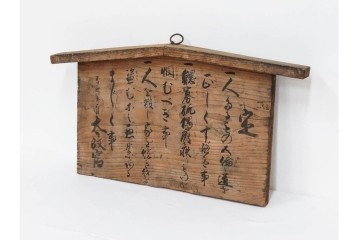 定
一人たるもの五倫之道を
正しくすへき事
一鰥寡孤獨癈疾のものを
憫むへき事
一人を殺し家を焼き財を
盗む等之悪業ある
ましく事
太政官